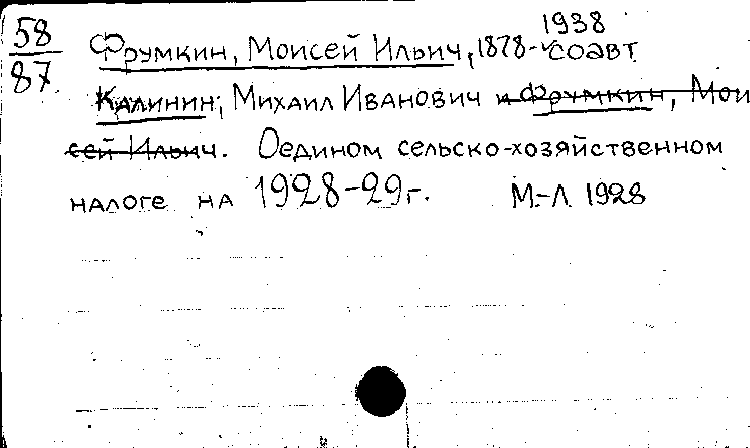 58
87
1938
Фрумкин, Моисей Ильич, 1878- соавт
Калинин, Михаил Иванович и Фрумкин, Мои
сей Ильич. О едином сельско-хозяйственном
налоге на 1928-29 г. М.-Л. 1928